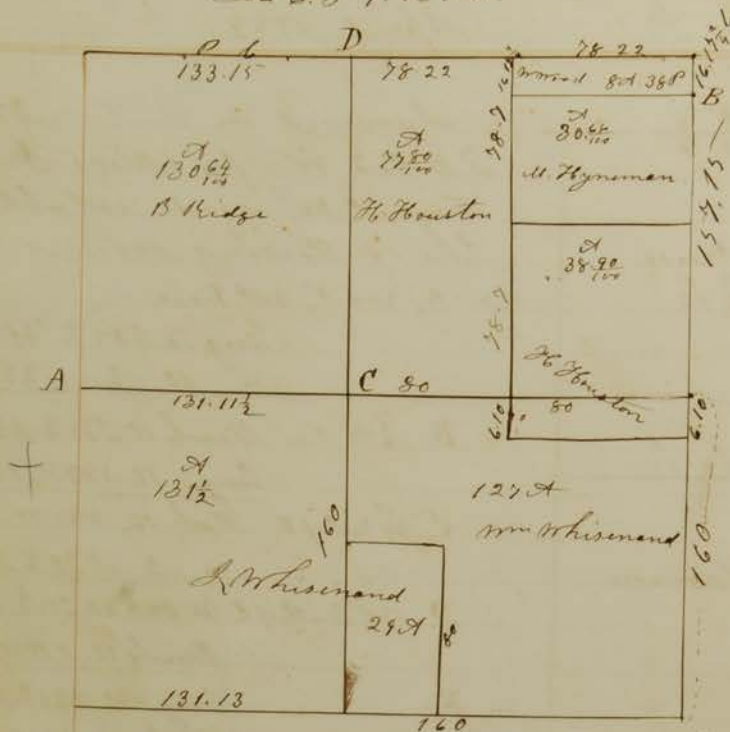 P 6 D
133.15 78 22 78.22
W Wood 8A 38P
B
A
130 64/100
B Ridge
A
77 80/100
H Houston
78.7
A
30.62/100
M. Hyneman
157.15
A
38.90/100
78.7
H Houston
A C 80
131.11 1/2
80
6.10 6.10
A
131 1/2
127 A
Wm Whisenand
160
160
J Whisenand
29 A
80
131.13
160